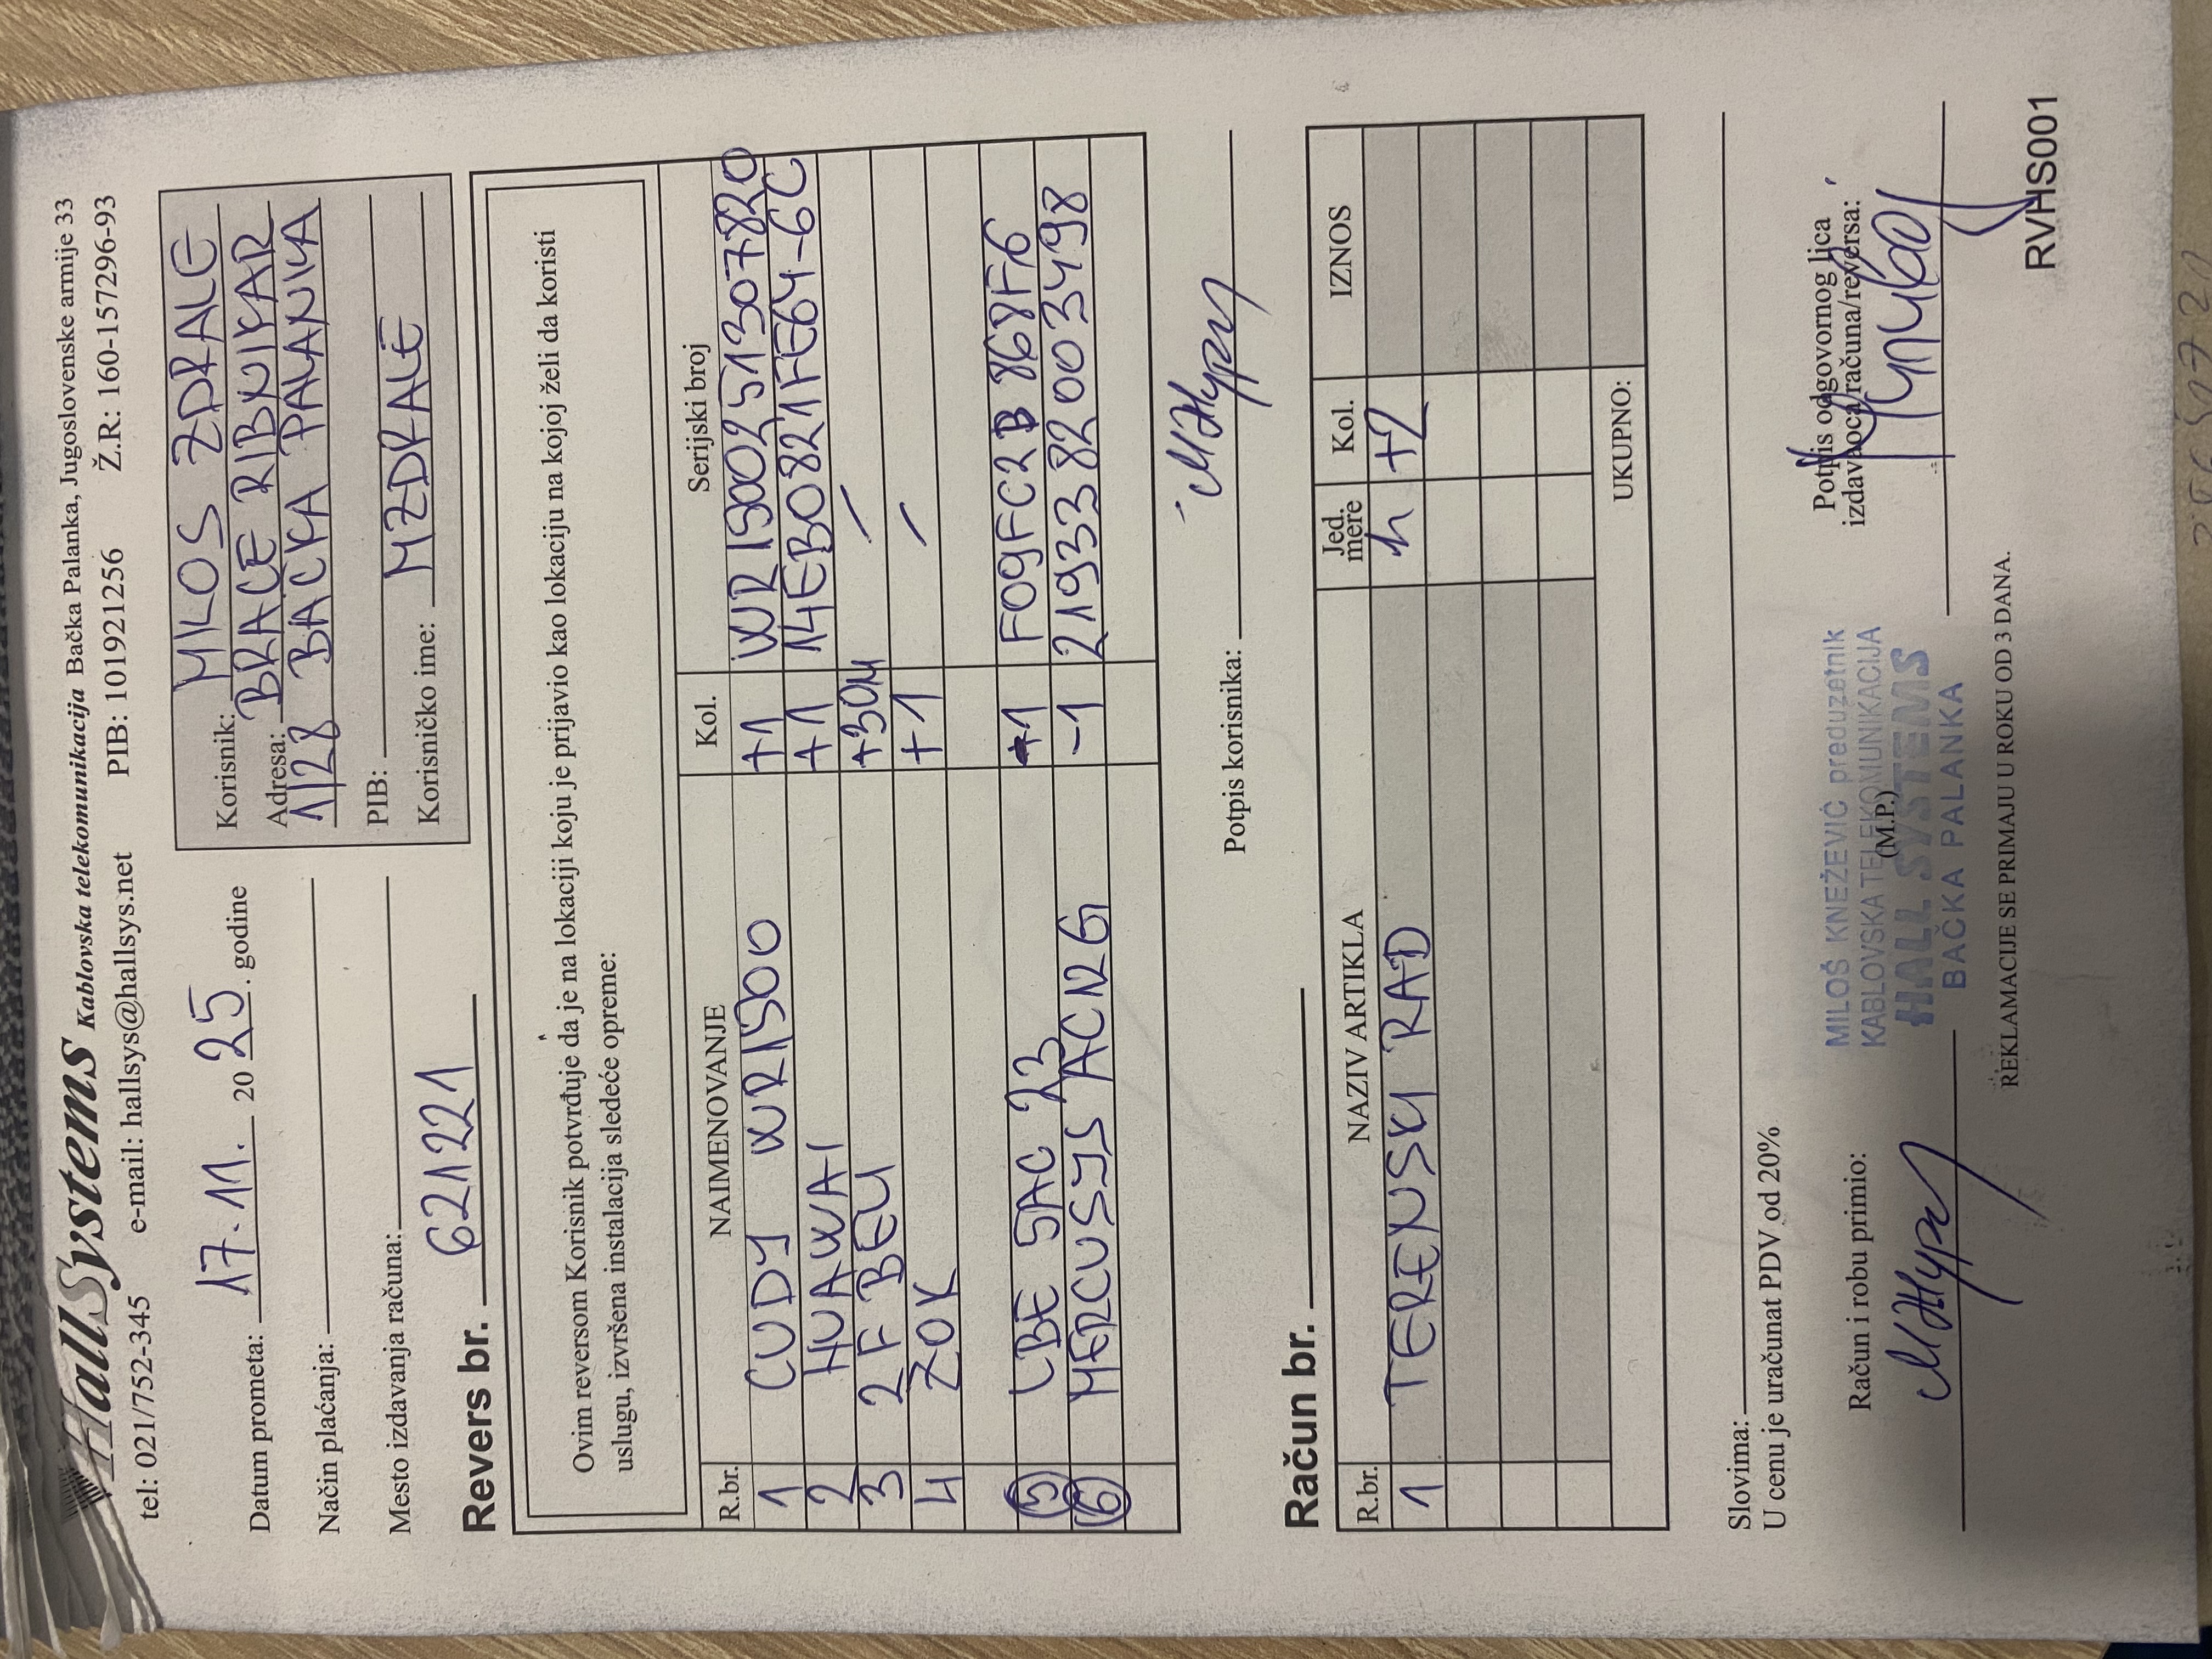 HallSystems Kablovska telekomunikacija Bačka Palanka, Jugoslovenske armije 33
tel: 021/752-345 e-mail: hallsys@hallsys.net PIB: 101921256 Ž.R: 160-157296-93
Datum prometa: 17.11. 2025. godine
Način plaćanja:
Mesto izdavanja računa:
Korisnik: MILOS ZDRALE
Adresa: BRACE RIBNIKAR
1/28 BAČKA PALANKA
PIB:
Korisničko ime: MZDRALE
Revers br. 621221
Ovim reversom Korisnik potvrđuje da je na lokaciji koju je prijavio kao lokaciju na kojoj želi da koristi
uslugu, izvršena instalacija sledeće opreme:
R.br. NAIMENOVANJE Kol. Serijski broj
1 CUDY WR1500 +1 WR1500251307820
2 HUAWAI +1 14EB0821FE64-6C
3 2F BELI +30M /
4 ZOK +1 /
5 LBE 5AC 23 -1 F09FC2B868F6
6 MERCUSYS AC12G -1 2193382003498
Potpis korisnika:
Račun br.
R.br. NAZIV ARTIKLA Jed. mere Kol. IZNOS
1 TERENSKI RAD h +2
UKUPNO:
Slovima:
U cenu je uračunat PDV od 20%
Račun i robu primio:
MILOŠ KNEŽEVIĆ preduzetnik
KABLOVSKA TELEKOMUNIKACIJA
(M.P.)
HALL SYSTEMS
BAČKA PALANKA
Potpis odgovornog lica
izdavaoca/računa/reversa:
REKLAMACIJE SE PRIMAJU U ROKU OD 3 DANA.
RVHS001